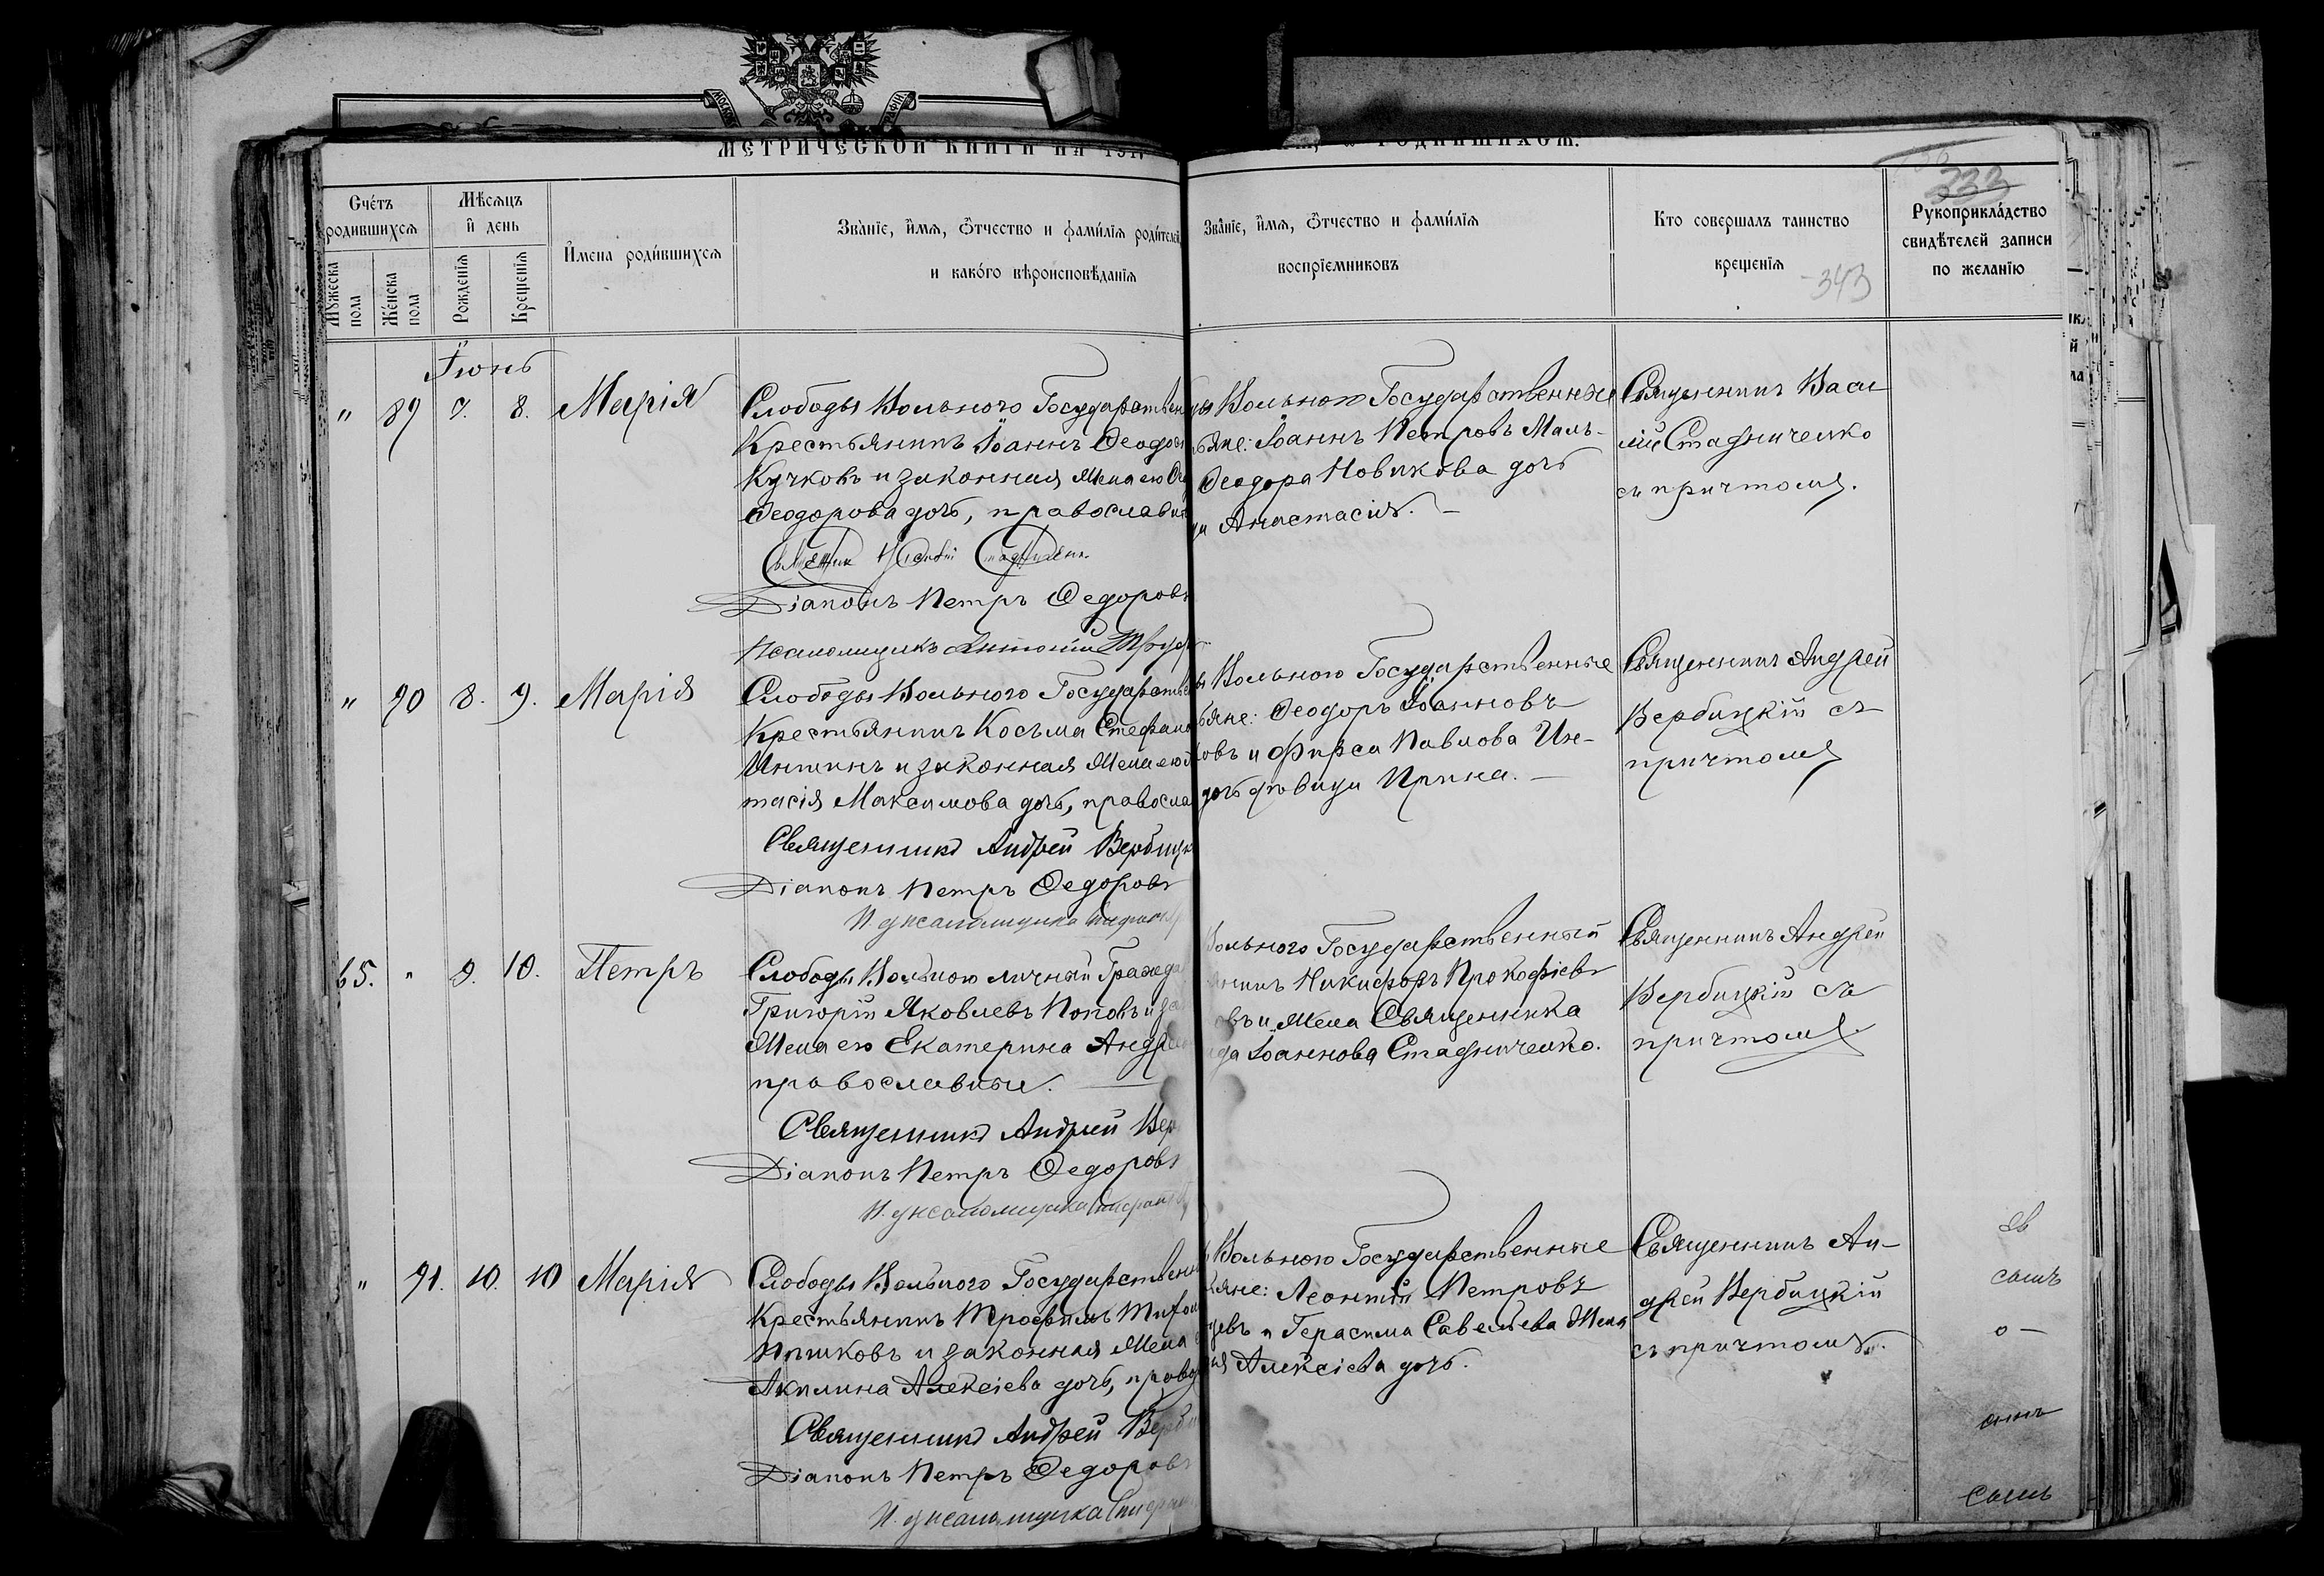 МЕТРИЧЕСКОЙ КНИГИ НА 191
РОДИВШИХСѦ.
333
Счетъ родившихсѧ
Мужеска пола
Женска пола
Мѣсяцъ и день
Рожденїѧ
Крещенїѧ
Имена родившихсѧ
Званїе, имѧ, ѿчество и фамилїѧ родителей,
и какого вѣроисповѣданїѧ
Званїе, имѧ, ѿчество и фамилїѧ
воспрїемниковъ
Кто совершалъ таинство
крещенїѧ
343
Рукоприкладство
свидѣтелей записи
по желанїю
Іюнь
" 89 7. 8. Марія
Слободы Вольнаго Государствен
Крестьянинъ Іоаннъ Ѳеодоро
Кучковъ и законная жена его
Ѳеодорова дочь, православн
Діаконъ Петръ Ѳедоровъ
Псаломщикъ Антоній
Вольнаго Государственные
ьяне: Іоаннъ Петровъ Маль-
Ѳеодора Новикова дочь
Анастасія. –
Священникъ Васи
лій Стадниченко
съ причтомъ.
" 90 8. 9. Марія
Слободы Вольнаго Государстве
Крестьянинъ Косьма Стефано
и законная жена его
тасія Максимова дочь, правосла
Священникъ Андрей Вербицк
Діаконъ Петръ Ѳедоровъ
И. д псаломщика
Вольнаго Государственные
ьяне: Ѳеодоръ Іоанновъ
овъ и Фирса Павлова Ин-
дочь дѣвица Ирина. –
Священникъ Андрей
Вербицкій съ
причтомъ
65. " 9. 10. Петръ
Слободы Вольнаго личный Гражда
Григорій Яковлевъ Поповъ и за
жена его Екатерина Андре
православные. –
Священникъ Андрей Вер
Діаконъ Петръ Ѳедоровъ
И. д псаломщика
Вольнаго Государственный
янинъ Никифоръ Прокофіевъ
овъ и жена Священника
ида Іоаннова Стадниченко.
Священникъ Андрей
Вербицкій съ
причтомъ.
" 91. 10. 10 Марія
Слободы Вольнаго Государственн
Крестьянинъ Трофимъ Тихон
и законная жена
Акилина Алексіева дочь, право
Священникъ Андрей Верби
Діаконъ Петръ Ѳедоровъ
И. д псаломщика
Вольнаго Государственные
ьяне: Леонтій Петровъ
цевъ и Герасима Савельева жена
ія Алексіева дочь.
Священникъ Ан-
дрей Вербицкій
съ причтомъ.